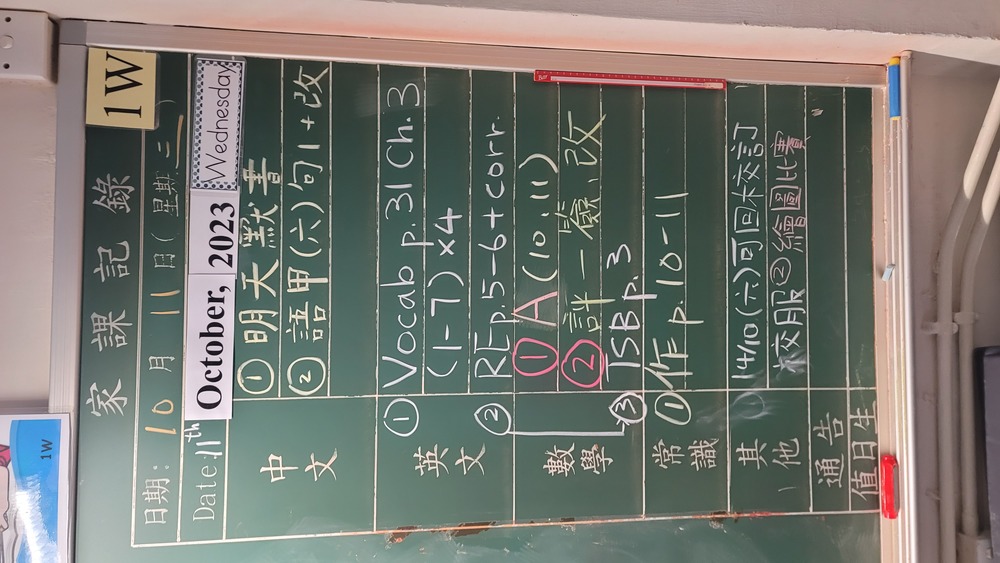 1W
家課記錄
日期： 10 月 11 日(星期 三)
Date: 11th October, 2023 Wednesday
中文
① 明天默書
② 語甲(六)句1+改
英文
① Vocab p.31 Ch.3
(1-7)×4
② RE p.5-6+corr.
③ TSB p. 3
數學
① A (10.11)
② 評一 檢.改
常識
① 作 p.10-11
其他
14/10(六)可回本校訂
校服②繪圖比賽
通告
值日生
1W